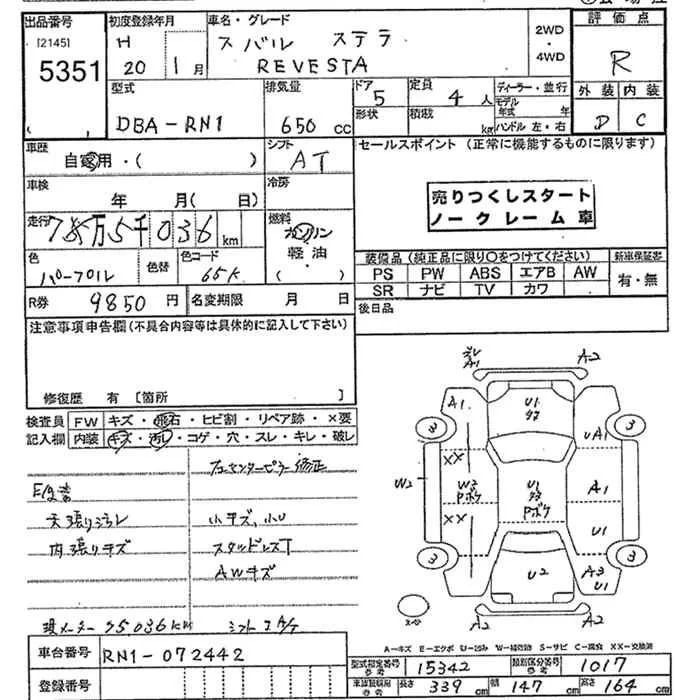 出品番号 初度登録年月 車名・グレード 評価点
[2145] H スバル ステラ 2WD
・
4WD
5351 20 1月 REVESTA R
型式 排気量 ドア 定員 ディーラー・並行 外装 内装
5 4人 モデル年式 年
DBA-RN1 650cc 形状 積載 kg ハンドル 左・右 D C
車歴 自家用・( ) シフト AT セールスポイント (正常に機能するものに限ります)
車検 年 月( 日) 冷房
売りつくしスタート
ノークレーム車
走行 km 燃料 ガソリン
軽油・
( )
色 パープル 色替 色コード 65K
装備品 (純正品に限り○をつけてください) 新車保証書
PS PW ABS エアB AW 有・無
SR ナビ TV カワ
R券 9850円 名変期限 月 日 後日品
注意事項申告欄(不具合内容等は具体的に記入して下さい)
修復歴 有 [箇所 ]
検査員 FW キズ・飛石・ヒビ割・リペア跡・×要
記入欄 内装 キズ・汚れ・コゲ・穴・スレ・キレ・破レ
修正
天張り汚レ 小キズ、小U
内張りキズ スタッドレスT
AWキズ
現メーター 75036km
A1 A2
A1 U1 3 3 UA1
XX
W2 W3 Pボケ U1 Pボケ A1
XX
U1
3 3
U2 A3 U1
A2 A2
A-キズ E-エクボ U-凹み W-補修跡 S-サビ C-腐食 XX-交換済
車台番号 RN1-072442
登録番号
型式指定番号 参考 15342 類別区分番号 参考 1017
車検証数用 参考 長さ 339cm 幅 147cm 高さ 164cm